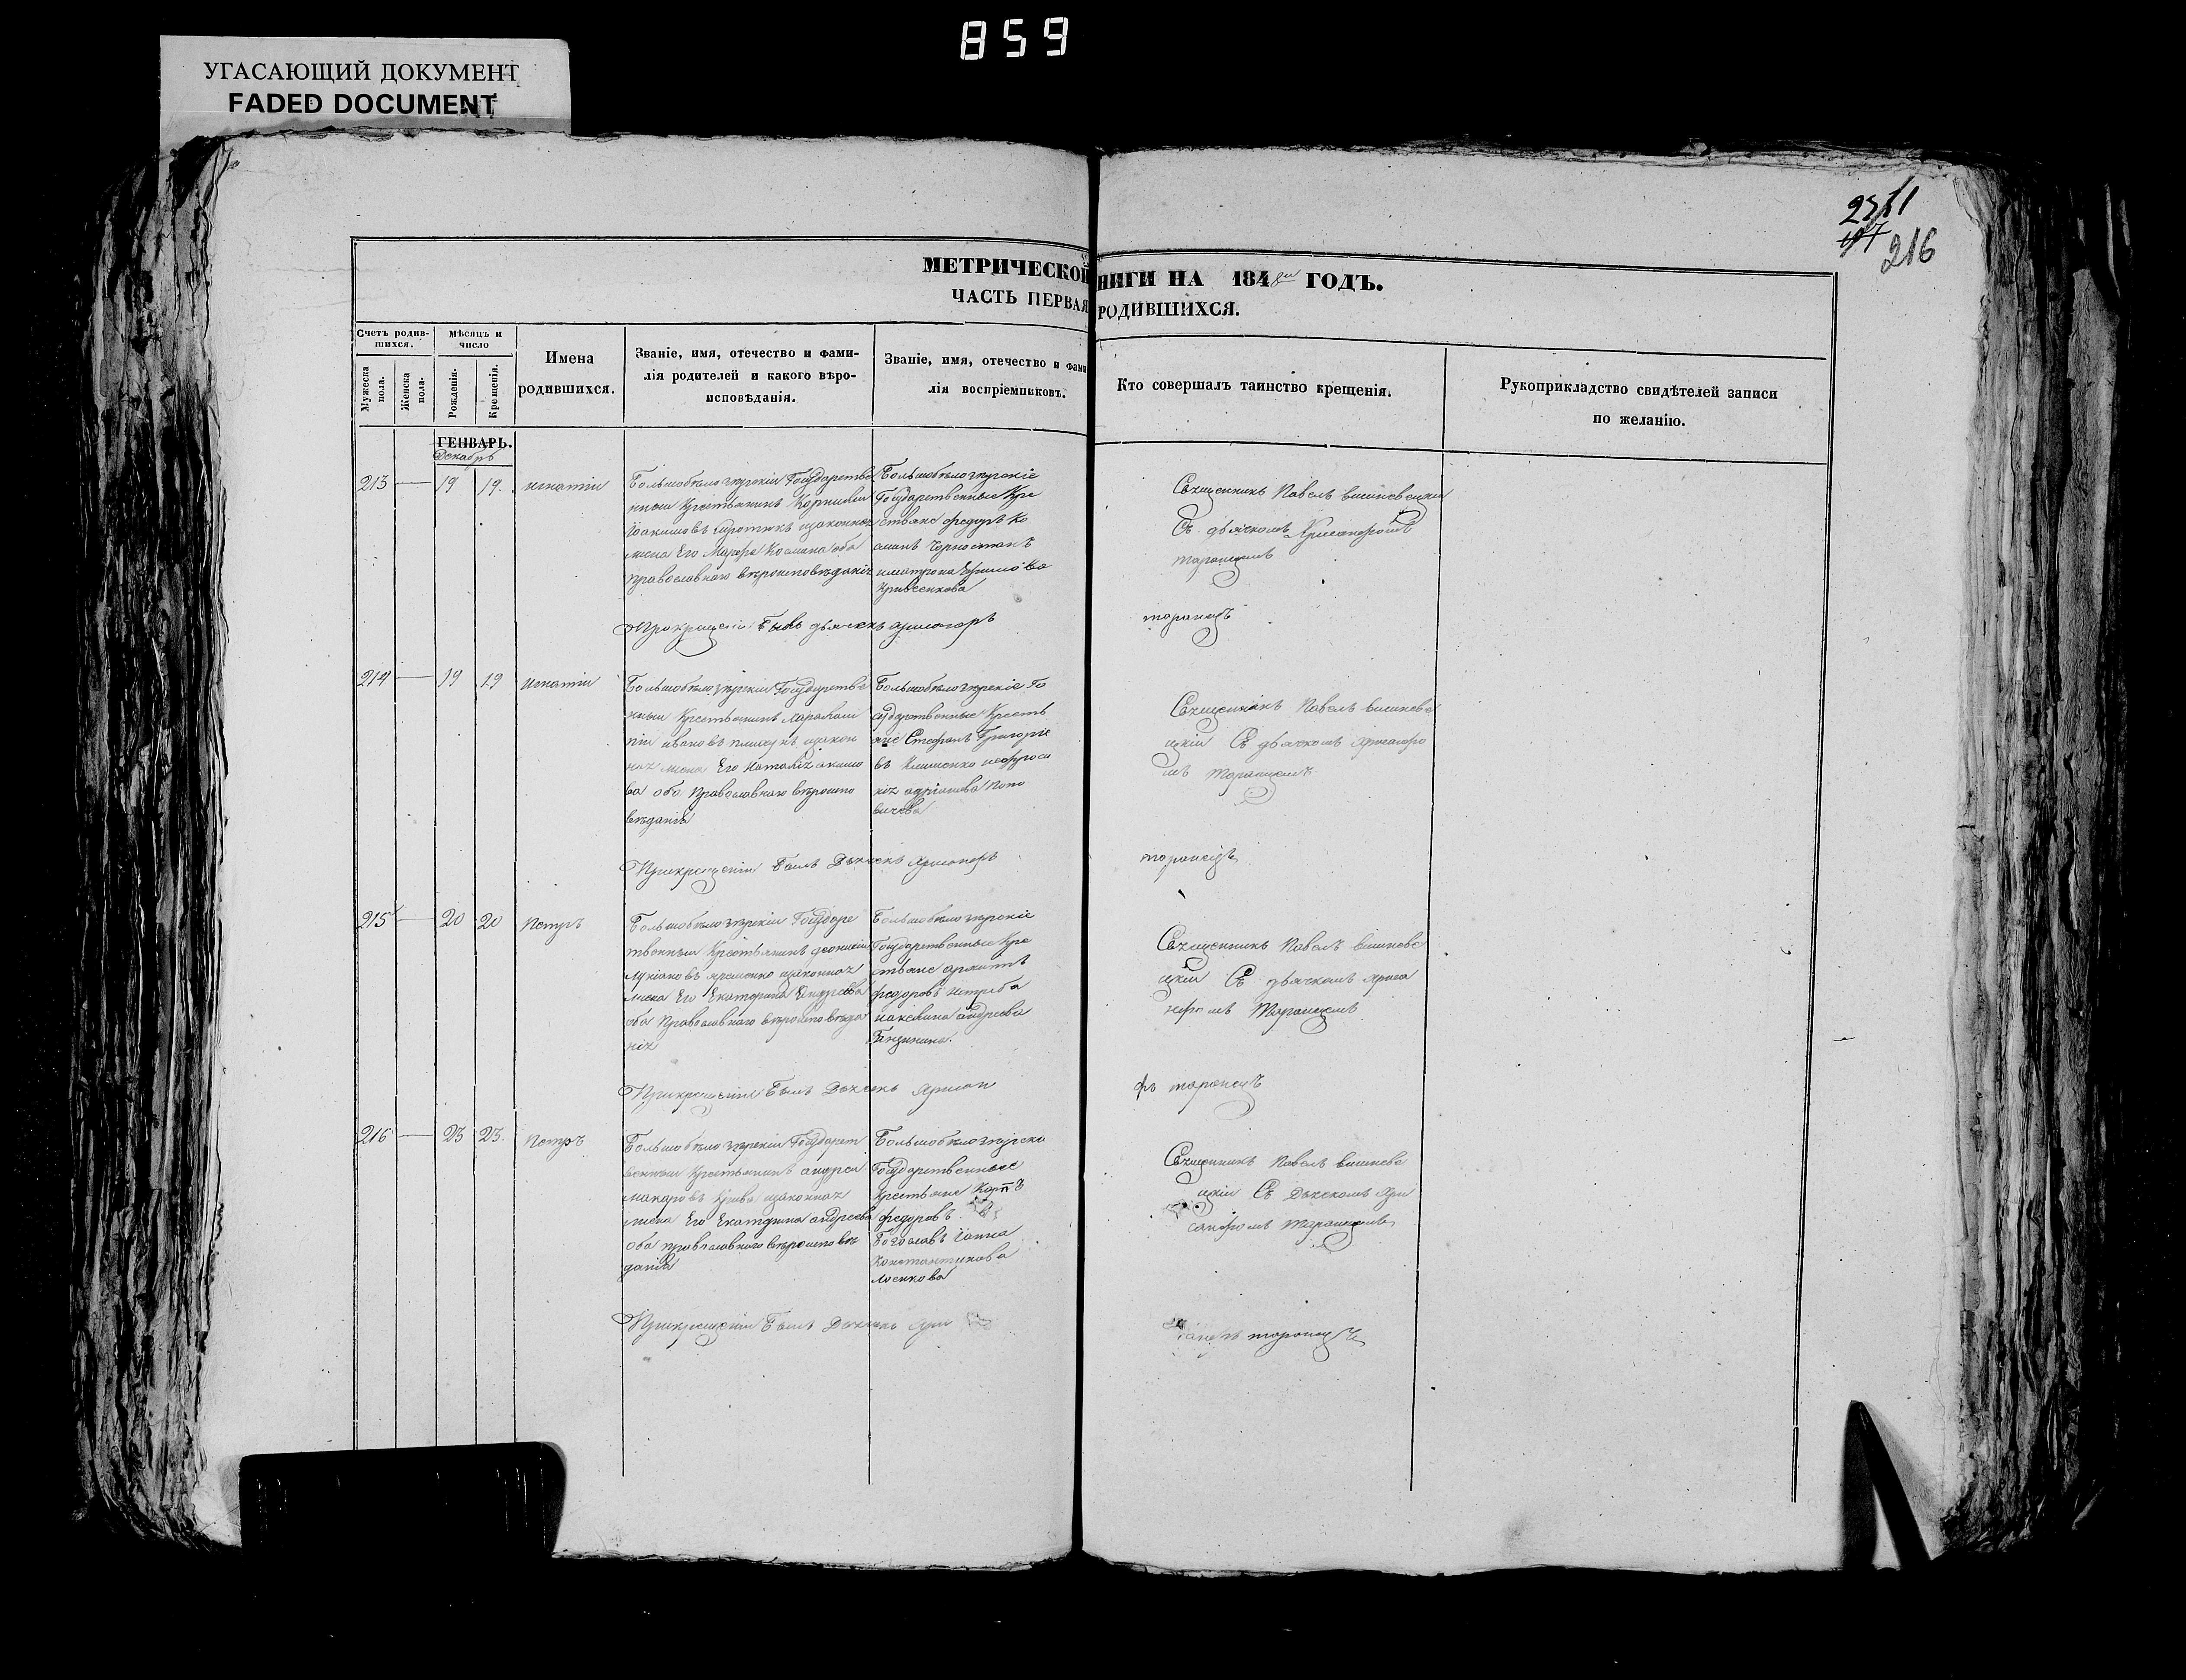 859
УГАСАЮЩИЙ ДОКУМЕНТ
FADED DOCUMENT
2251
197
216
МЕТРИЧЕСКОЙ НИГИ НА 1848 ГОДЪ.
ЧАСТЬ ПЕРВАЯ РОДИВШИХСЯ.
Счетъ родив-
шихся.
Мужеска
пола.
Женска
пола.
Мѣсяцъ и
число
Рожденія.
Крещенія.
Имена
родившихся.
Званіе, имя, отечество и фами-
лія родителей и какого вѣро-
исповѣданія.
Званіе, имя, отечество и фами
лія воспріемниковъ.
Кто совершалъ таинство крещенія.
Рукоприкладство свидѣтелей записи
по желанію.
ГЕНВАРЬ.
Декабрь
213 — 19 19. игнатіи
Большобѣлозерскіи Государстве
нныи Крестьянинъ Корнилии
Иоакимовъ изаконная
жена Его Марфа Космина оба
православнаго вѣроисповѣданія
Большобѣлозерскіе
Государственные Кре
стьяне федоръ Ко
Священникъ Павелъ вишневецкіи
Съ дьячкомъ Хрисанфомъ
таранцемъ
Прикрещеніи Былъ дьячекъ хрисанфъ
таранецъ
214 — 19 19 игнатіи
Большобѣлозерскіи Государстве
нныи Крестьянинъ
ивановъ изакон
ная жена Его Наталія акимо
ва оба Православнаго вѣроиспо
вѣданія
Большобѣлозерскіе Го
сударственные Кресть
яне Стефанъ Григорье
въ Клименко
Священникъ Павелъ вишневе
цкіи Съ дьячкомъ хрисанфо
мъ Таранцемъ
Прикрещеніи Былъ Дьячекъ хрисанфъ
таранецъ
215 — 20 20 Петръ
Большобѣлозерскіи Государс
твенныи Крестьянинъ
лукіановъ яременко изаконная
жена Его Екатерина Андреева
оба Православнаго вѣроисповѣда
нія
Большобѣлозерскіе
Государственные Кре
стьяне
федоровъ нетреба
иакелина андреева
Священникъ Павелъ вишневе
цкіи Съ дьячкомъ хриса
нфомъ Таранцемъ
Прикрещеніи Былъ Дьячекъ Хрисан
фъ таранецъ
216 — 23 23. Петръ
Большобѣлозерскіи Государст
венныи Крестьянинъ андреи
макаровъ Крива изаконная
жена Его Екатерина андреева
оба православнаго вѣроисповѣ
данія
Большобѣлозерски
Государственные
Крестьяне Карпъ
федоровъ
Богославъ иАнна
Константинова
Священникъ Павелъ вишневе
цкіи Съ Дьячкомъ хри
санфомъ таранцемъ
Прикрещеніи Былъ Дьячекъ хри
санфъ таранецъ